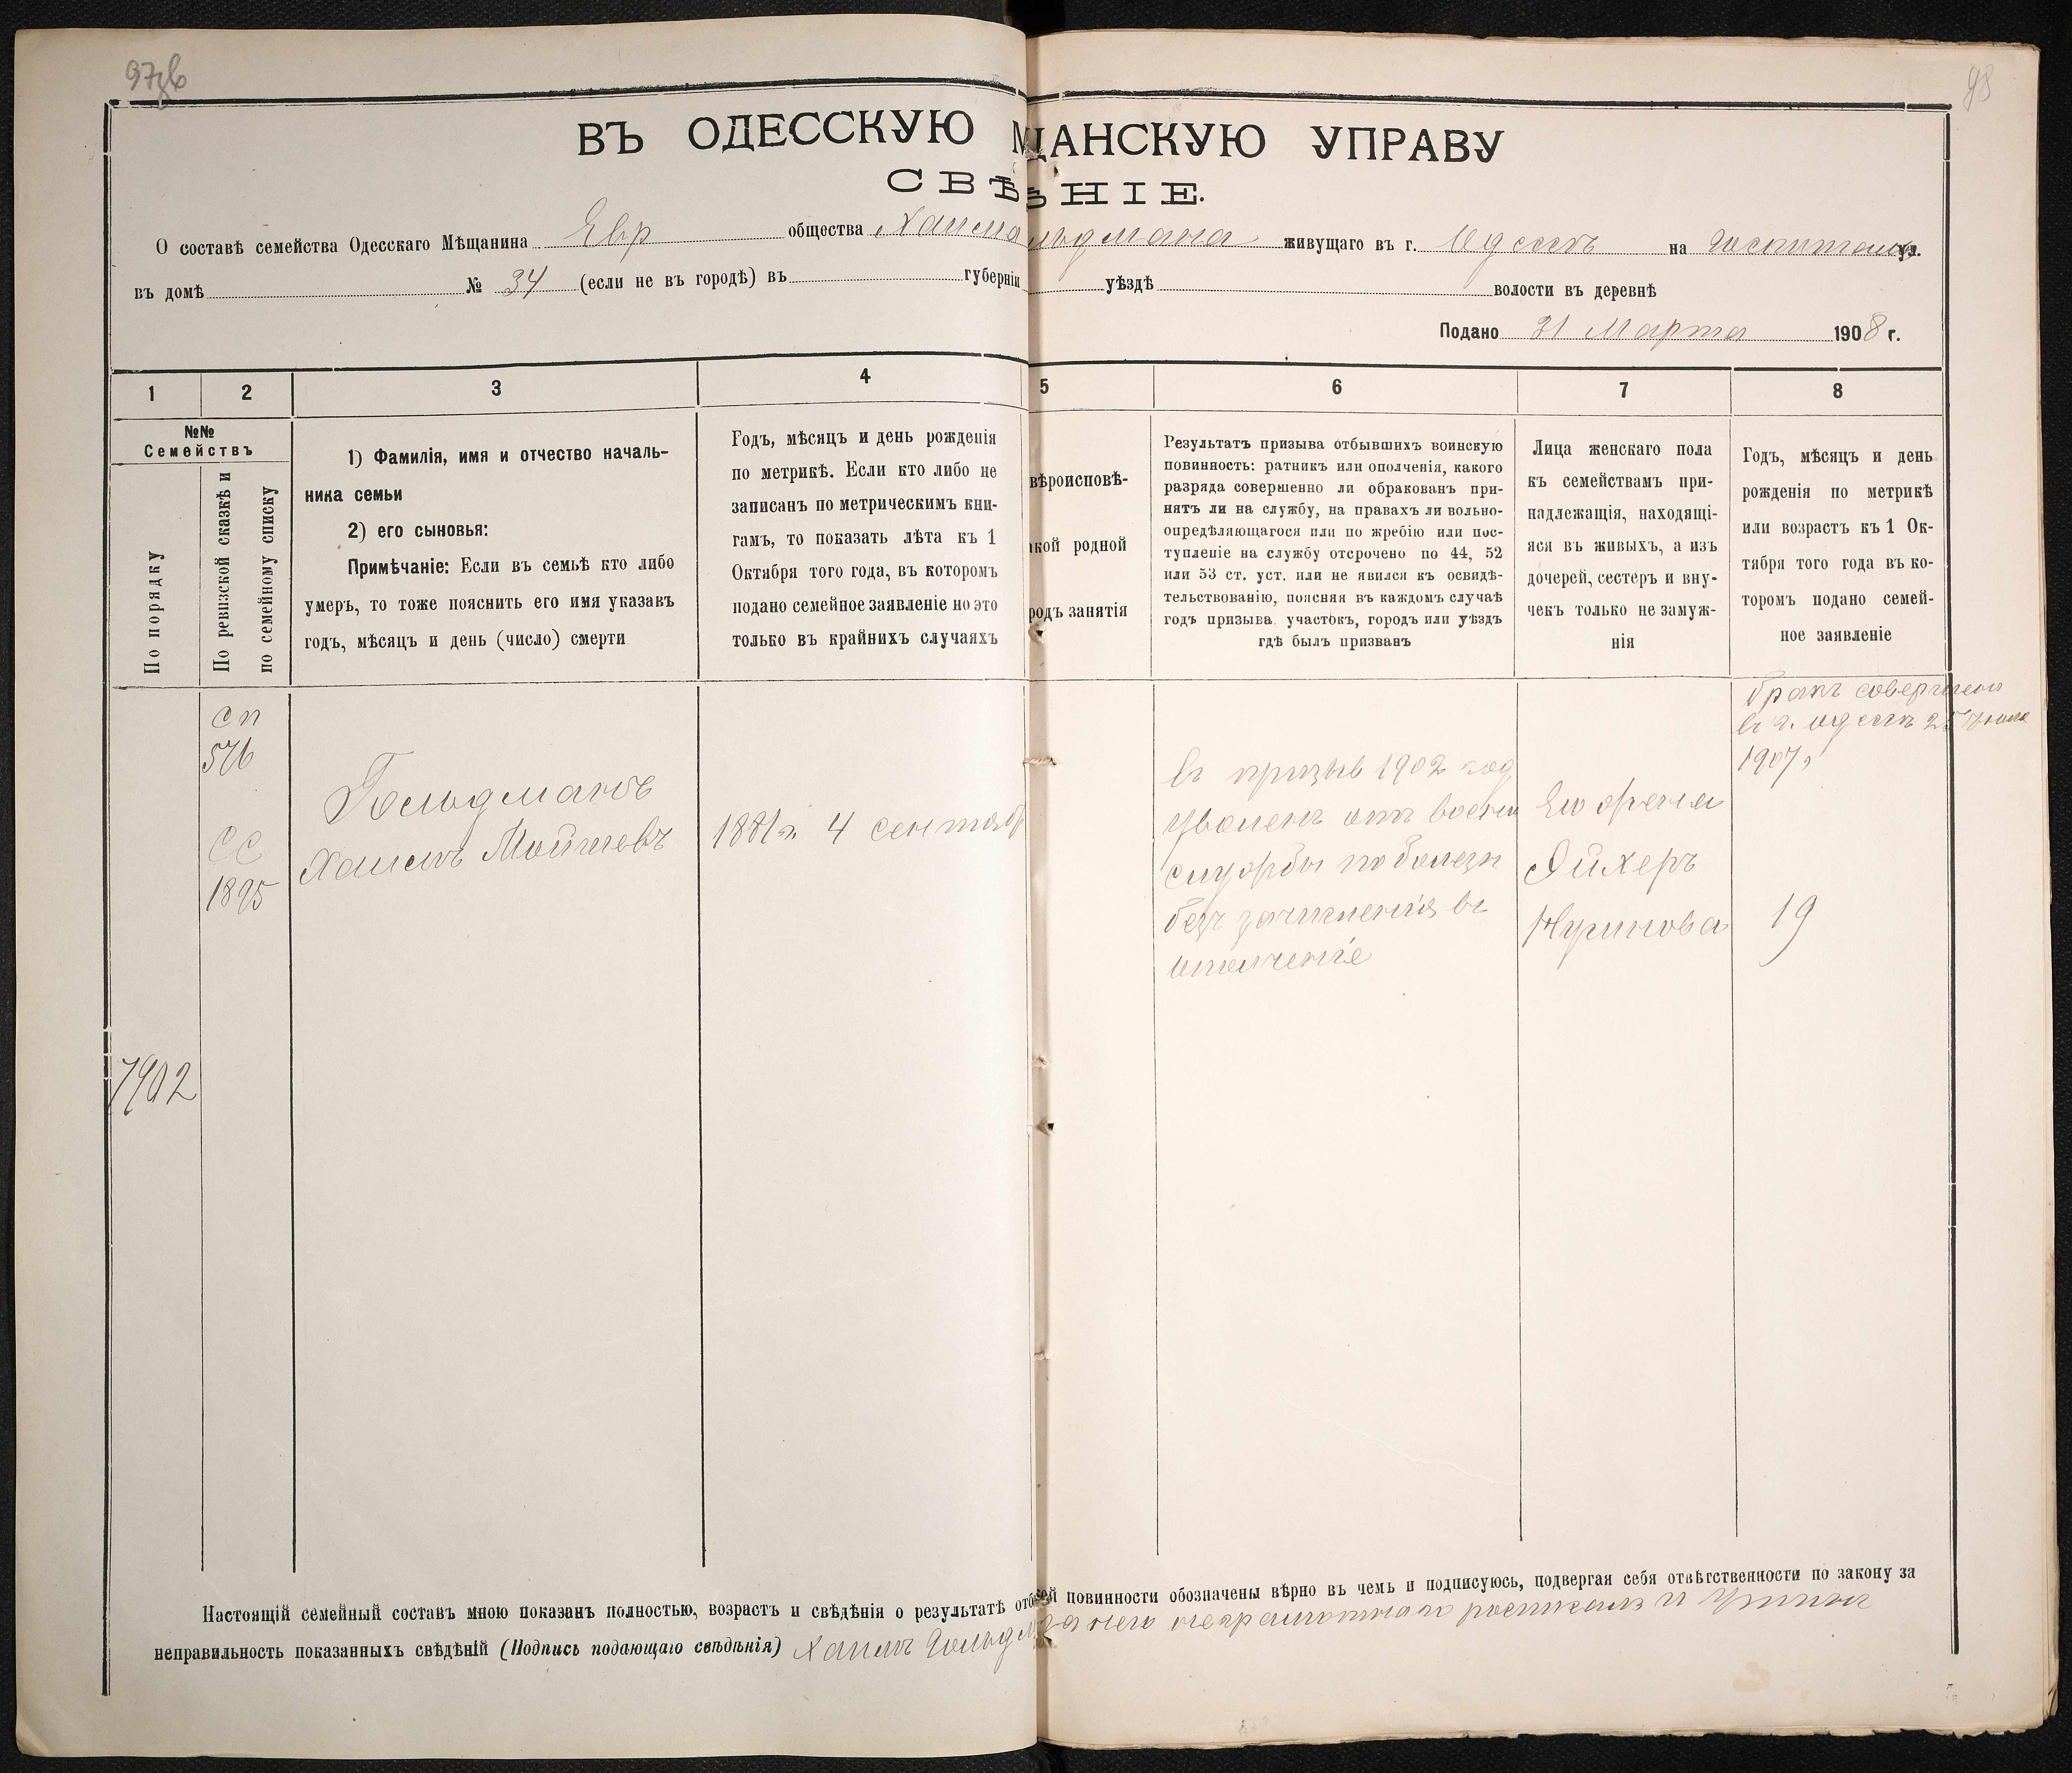 98
ВЪ ОДЕССКУЮ М ЩАНСКУЮ УПРАВУ
СВѢ НІЕ.
О составѣ семейства Одесскаго Мѣщанина Евр общества Хаима льдмана живущаго въ г. Одессѣ на Госпитальн ул.
въ домѣ № 34 (если не въ городѣ) въ губерніи уѣздѣ волости въ деревнѣ
Подано 31 Марта 1908 г.
1 2 3 4 5 6 7 8
№№
Семействъ
По порядку
По ревизской сказкѣ и
по семейному списку
1) Фамилія, имя и отчество началь-
ника семьи
2) его сыновья:
Примѣчаніе: Если въ семьѣ кто либо
умеръ, то тоже пояснить его имя указавъ
годъ, мѣсяцъ и день (число) смерти
Годъ, мѣсяцъ и день рожденія
по метрикѣ. Если кто либо не
записанъ по метрическимъ кни-
гамъ, то показать лѣта къ 1
Октября того года, въ которомъ
подано семейное заявленіе но это
только въ крайнихъ случаяхъ
вѣроисповѣ-
акой родной
родъ занятія
Результатъ призыва отбывшихъ воинскую
повинность: ратникъ или ополченія, какого
разряда совершенно ли обракованъ при-
нятъ ли на службу, на правахъ ли вольно-
опредѣляющагося или по жребію или пос-
тупленіе на службу отсрочено по 44, 52
или 53 ст. уст. или не явился къ освидѣ-
тельствованію, поясняя въ каждомъ случаѣ
годъ призыва участокъ, городъ или уѣздъ
гдѣ былъ призванъ
Лица женскаго пола
къ семействамъ при-
надлежащія, находящі-
яся въ живыхъ, а изъ
дочерей, сестеръ и вну-
чекъ только не замуж-
нія
Годъ, мѣсяцъ и день
рожденія по метрикѣ
или возрастъ къ 1 Ок-
тября того года въ ко-
торомъ подано семей-
ное заявленіе
7902
сп
576
сс
1895
Гольдманъ
Хаимъ Мойшевъ
1881 г. 4 сентябр
въ призыв 1902 год
уволенъ отъ воени
службы по болезн
безъ зачисленія въ
ополченіе
Его жена
Эйхеръ
Нуринова
бракъ совершенъ
въ г. одессѣ 25 Июня
1907 г
19
Настоящій семейный составъ мною показанъ полностью, возрастъ и свѣдѣнія о результатѣ отб ской повинности обозначены вѣрно въ чемъ и подписуюсь, подвергая себя отвѣтственности по закону за
неправильность показанныхъ свѣдѣній (Подпись подающаго свѣдѣнія) Хаимъ Гольдм за него неграмотнаго росписался